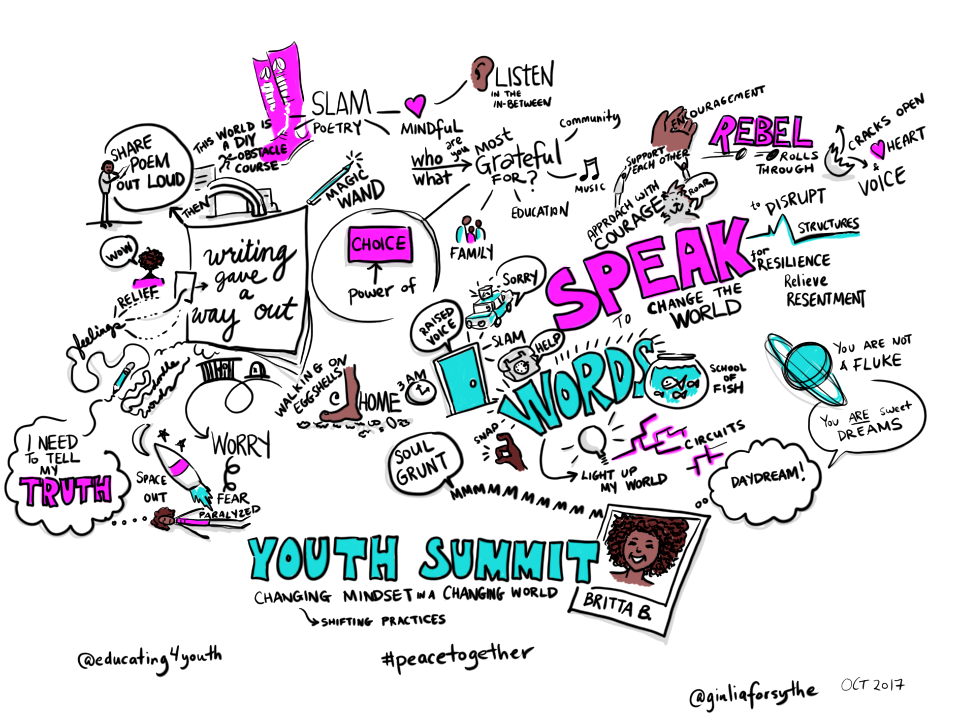 SHARE
POEM
OUT LOUD
THIS WORLD IS
A DIY
OBSTACLE
COURSE
THEN
SLAM
POETRY
MINDFUL
LISTEN
IN THE
IN-BETWEEN
MAGIC
WAND
who are you
what
MOST
Grateful
FOR?
community
MUSIC
EDUCATION
FAMILY
ENCOURAGEMENT
SUPPORT
EACH OTHER
APPROACH WITH
COURAGE
ROAR
REBEL
ROLLS
THROUGH
CRACKS OPEN
HEART
&
VOICE
to DISRUPT
STRUCTURES
for
RESILIENCE
Relieve
RESENTMENT
WOW
RELIEF
feelings
doodle
words
writing
gave
a
way out
CHOICE
Power of
SPEAK
TO CHANGE THE
WORLD
WORDS
SORRY
RAISED
VOICE
SLAM
HELP
WALKING ON
EGGSHELLS
HOME
3AM
SCHOOL
OF
FISH
YOU ARE NOT
A FLUKE
You ARE sweet
DREAMS
DAYDREAM!
I NEED
TO TELL
MY
TRUTH
SPACE
OUT
WORRY
FEAR
PARALYZED
SOUL
GRUNT
MMMMMMMMMM
SNAP
LIGHT UP
MY WORLD
CIRCUITS
YOUTH SUMMIT
CHANGING MINDSET IN A CHANGING WORLD
SHIFTING PRACTICES
BRITTA B.
@educating4youth
#peacetogether
@giuliaforsythe
OCT 2017